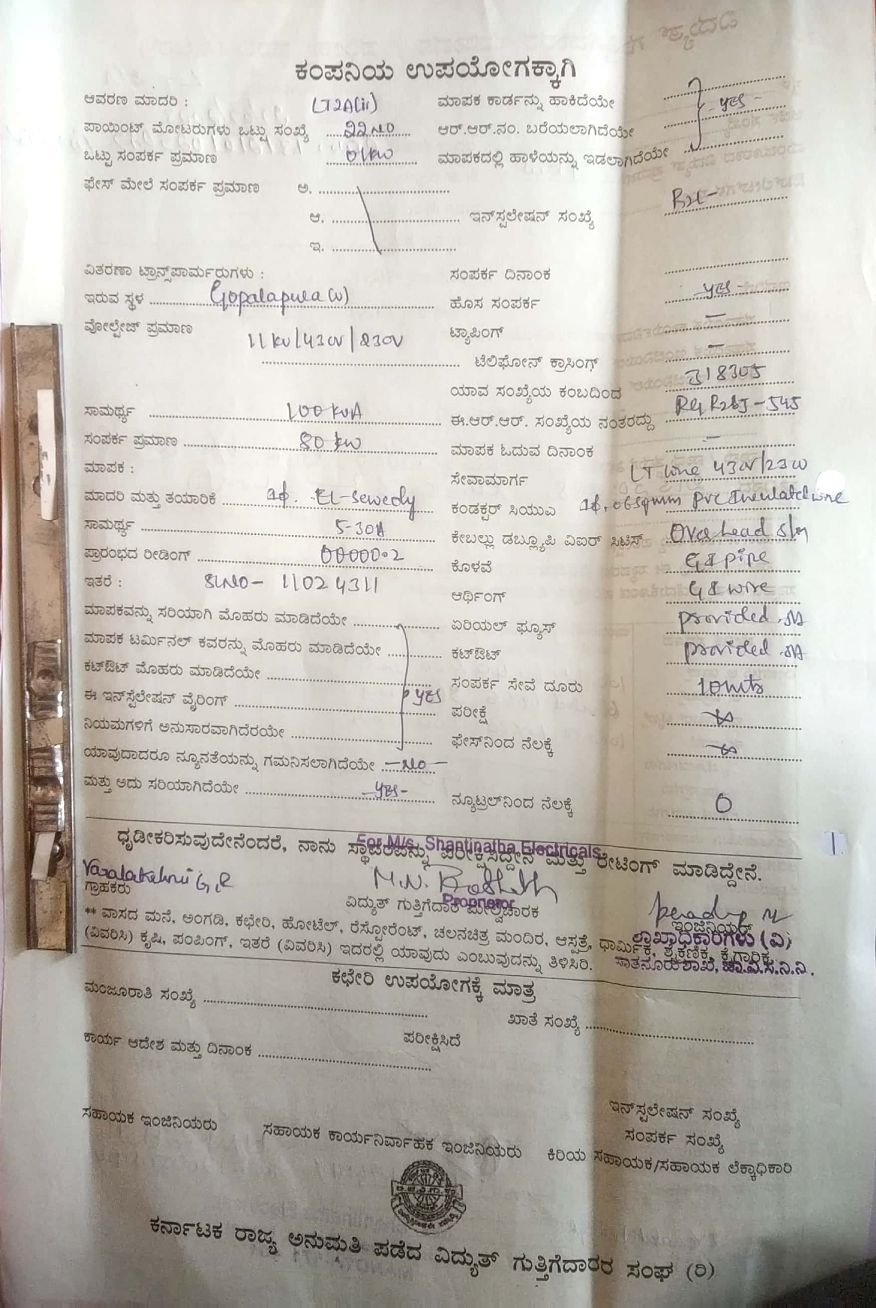 ಕಂಪನಿಯ ಉಪಯೋಗಕ್ಕಾಗಿ
ಆವರಣ ಮಾದರಿ : LT2A(ii) ಮಾಪಕ ಕಾರ್ಡನ್ನು ಹಾಕಿದೆಯೇ
ಪಾಯಿಂಟ್ ಮೋಟರುಗಳು ಒಟ್ಟು ಸಂಖ್ಯೆ ಆರ್.ಆರ್.ನಂ. ಬರೆಯಲಾಗಿದೆಯೇ -YES-
ಒಟ್ಟು ಸಂಪರ್ಕ ಪ್ರಮಾಣ 01kW ಮಾಪಕದಲ್ಲಿ ಹಾಳೆಯನ್ನು ಇಡಲಾಗಿದೆಯೇ
ಫೇಸ್ ಮೇಲೆ ಸಂಪರ್ಕ ಪ್ರಮಾಣ ಅ.
ಆ. ಇನ್‌ಸ್ಟಲೇಷನ್ ಸಂಖ್ಯೆ
ಇ.
ವಿತರಣಾ ಟ್ರಾನ್ಸ್‌ಫಾರ್ಮರುಗಳು : ಸಂಪರ್ಕ ದಿನಾಂಕ
ಇರುವ ಸ್ಥಳ Gopalapura(W) ಹೊಸ ಸಂಪರ್ಕ -YES-
ವೋಲ್ಟೇಜ್ ಪ್ರಮಾಣ 11kV/430V/230V ಟ್ಯಾಪಿಂಗ್ -
ಟೆಲಿಫೋನ್ ಕ್ರಾಸಿಂಗ್ -
ಯಾವ ಸಂಖ್ಯೆಯ ಕಂಬದಿಂದ 318305
ಸಾಮರ್ಥ್ಯ 100 kVA ಈ.ಆರ್.ಆರ್. ಸಂಖ್ಯೆಯ ನಂತರದ್ದು
ಸಂಪರ್ಕ ಪ್ರಮಾಣ 80 kW ಮಾಪಕ ಓದುವ ದಿನಾಂಕ -
ಮಾಪಕ : ಸೇವಾಮಾರ್ಗ LT line 430V/230
ಮಾದರಿ ಮತ್ತು ತಯಾರಿಕೆ 1ϕ. EL-Sewedy ಕಂಡಕ್ಟರ್ ಸಿಯುಎ 1ϕ, 06sqmm PVC Insulated wire
ಸಾಮರ್ಥ್ಯ 5-30A ಕೇಬಲ್ಲು ಡಬ್ಲ್ಯೂಪಿ ವಿಐಆರ್ ಸಿಟಿಸ್ Over head
ಪ್ರಾರಂಭದ ರೀಡಿಂಗ್ 00000.2 ಕೊಳವೆ GI pipe
ಇತರೆ : SLNO- 11024311 ಅರ್ಥಿಂಗ್ GI wire
ಮಾಪಕವನ್ನು ಸರಿಯಾಗಿ ಮೊಹರು ಮಾಡಿದೆಯೇ ಏರಿಯಲ್ ಫ್ಯೂಸ್ provided
ಮಾಪಕ ಟರ್ಮಿನಲ್ ಕವರನ್ನು ಮೊಹರು ಮಾಡಿದೆಯೇ ಕಟ್‌ಔಟ್ provided
ಕಟ್‌ಔಟ್ ಮೊಹರು ಮಾಡಿದೆಯೇ ಸಂಪರ್ಕ ಸೇವೆ ದೂರು 10mts
ಈ ಇನ್‌ಸ್ಟೆಲೇಷನ್ ವೈರಿಂಗ್ YES ಪರೀಕ್ಷೆ
ನಿಯಮಗಳಿಗೆ ಅನುಸಾರವಾಗಿದೆರಯೇ ಫೇಸ್‌ನಿಂದ ನೆಲಕ್ಕೆ
ಯಾವುದಾದರೂ ನ್ಯೂನತೆಯನ್ನು ಗಮನಿಸಲಾಗಿದೆಯೇ -NO-
ಮತ್ತು ಅದು ಸರಿಯಾಗಿದೆಯೇ -YES- ನ್ಯೂಟ್ರಲ್‌ನಿಂದ ನೆಲಕ್ಕೆ 0
For M/s. Shantinatha Electricals
ಧೃಡೀಕರಿಸುವುದೇನೆಂದರೆ, ನಾನು ಸ್ಥಾವರವನ್ನು ಪರೀಕ್ಷಿಸಿದ್ದೇನೆ ಮತ್ತು ರೇಟಿಂಗ್ ಮಾಡಿದ್ದೇನೆ.
Varalakshmi G.R
ಗ್ರಾಹಕರು ವಿದ್ಯುತ್ ಗುತ್ತಿಗೆದಾರ ಮೇಲ್ವಿಚಾರಕ ಇಂಜಿನಿಯರ್
Proprietor
** ವಾಸದ ಮನೆ, ಅಂಗಡಿ, ಕಛೇರಿ, ಹೋಟೆಲ್, ರೆಸ್ಟೋರೆಂಟ್, ಚಲನಚಿತ್ರ ಮಂದಿರ, ಆಸ್ಪತ್ರೆ, ಧಾರ್ಮಿಕ, ಶೈಕ್ಷಣಿಕ, ಕೈಗಾರಿಕ
ಶಾಖಾಧಿಕಾರಿಗಳು (ವಿ)
(ವಿವರಿಸಿ) ಕೃಷಿ, ಪಂಪಿಂಗ್, ಇತರೆ (ವಿವರಿಸಿ) ಇದರಲ್ಲಿ ಯಾವುದು ಎಂಬುವುದನ್ನು ತಿಳಿಸಿರಿ.
ಸಾತನೂರು ಶಾಖೆ, ಚಾ.ವಿ.ಸ.ನಿ.ನಿ.
ಕಛೇರಿ ಉಪಯೋಗಕ್ಕೆ ಮಾತ್ರ
ಮಂಜೂರಾತಿ ಸಂಖ್ಯೆ ಖಾತೆ ಸಂಖ್ಯೆ
ಕಾರ್ಯ ಆದೇಶ ಮತ್ತು ದಿನಾಂಕ ಪರೀಕ್ಷಿಸಿದೆ
ಇನ್‌ಸ್ಟಲೇಷನ್ ಸಂಖ್ಯೆ
ಸಂಪರ್ಕ ಸಂಖ್ಯೆ
ಸಹಾಯಕ ಇಂಜಿನಿಯರು ಸಹಾಯಕ ಕಾರ್ಯನಿರ್ವಾಹಕ ಇಂಜಿನಿಯರು ಕಿರಿಯ ಸಹಾಯಕ/ಸಹಾಯಕ ಲೆಕ್ಕಾಧಿಕಾರಿ
ಕರ್ನಾಟಕ ರಾಜ್ಯ ಅನುಮತಿ ಪಡೆದ ವಿದ್ಯುತ್ ಗುತ್ತಿಗೆದಾರರ ಸಂಘ (ರಿ)